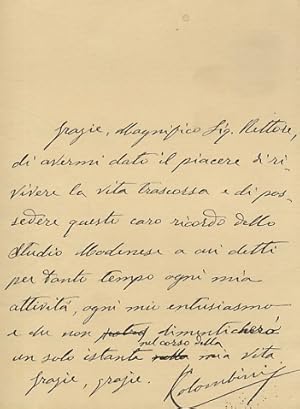 Grazie, Magnifico Sig. Rettore,
di avermi dato il piacere di ri-
vivere la vita trascorsa e di pos-
sedere questo caro ricordo dello
Studio Modenese a cui detti
per tanto tempo ogni mia
attività, ogni mio entusiasmo
e che non dimenticherò
nel corso della
un solo istante mia vita
Grazie, grazie.
Colombini